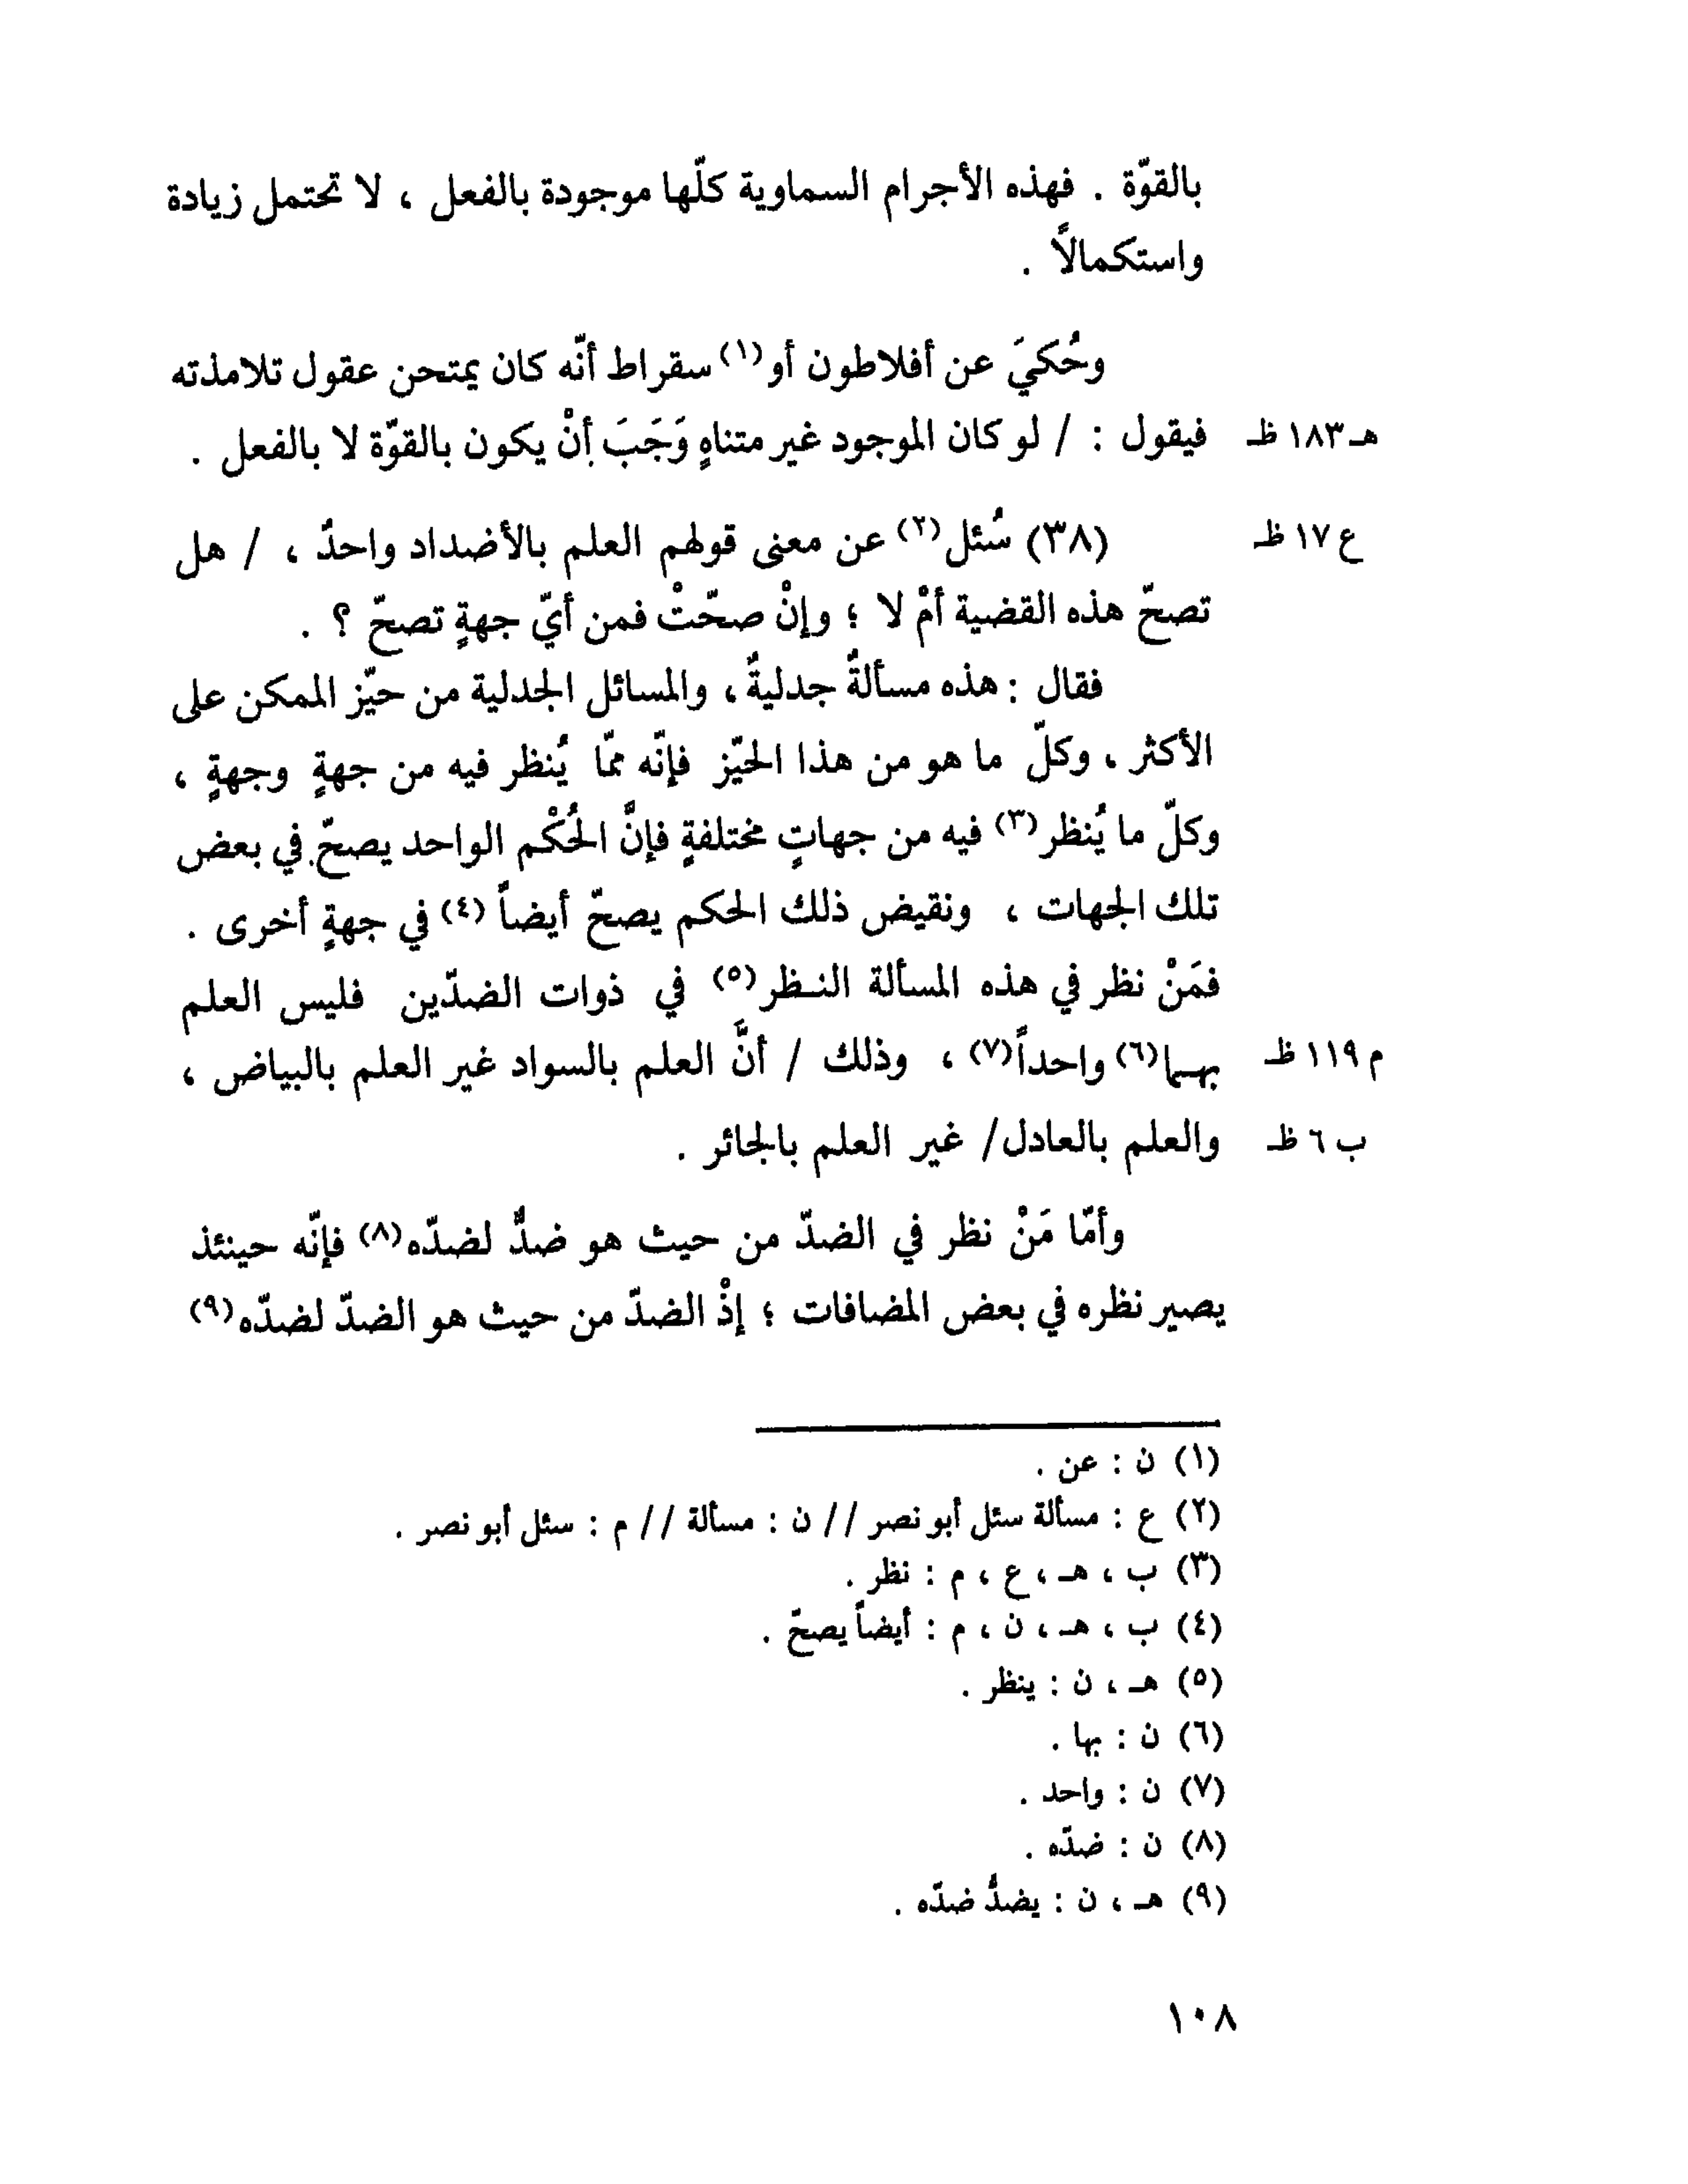 بالقوّة . فهذه الأجرام السماوية كلّها موجودة بالفعل ، لا تحتمل زيادة
واستكمالاً .
وحُكيَ عن أفلاطون أو(١) سقراط أنّه كان يمتحن عقول تلامذته
هـ ١٨٣ ظـ فيقول : / لو كان الموجود غير متناهٍ وَجَبَ أنْ يكون بالقوّة لا بالفعل .
ع ١٧ ظـ (٣٨) سُئل(٢) عن معنى قولهم العلم بالأضداد واحدٌ ، / هل
تصحّ هذه القضية أمْ لا ؛ وإنْ صحّتْ فمن أيّ جهةٍ تصحّ ؟ .
فقال : هذه مسألةٌ جدليةٌ ، والمسائل الجدلية من حيّز الممكن على
الأكثر ، وكلّ ما هو من هذا الحيّز فإنّه ممّا يُنظر فيه من جهةٍ وجهةٍ ،
وكلّ ما يُنظر(٣) فيه من جهاتٍ مختلفةٍ فإنَّ الحُكْم الواحد يصحّ في بعض
تلك الجهات ، ونقيض ذلك الحكم يصحّ أيضاً (٤) في جهةٍ أخرى .
فمَنْ نظر في هذه المسألة النـظر(٥) في ذوات الضدّين فليس العلم
م ١١٩ ظـ بهـما(٦) واحداً(٧) ، وذلك / أنَّ العلم بالسواد غير العلم بالبياض ،
ب ٦ ظـ والعلم بالعادل/ غير العلم بالجائر .
وأمّا مَنْ نظر في الضدّ من حيث هو ضدٌّ لضدّه(٨) فإنّه حينئذ
يصير نظره في بعض المضافات ؛ إذْ الضدّ من حيث هو الضدّ لضدّه(٩)
(١) ن : عن .
(٢) ع : مسألة سئل أبو نصر // ن : مسألة // م : سئل أبو نصر .
(٣) ب ، هـ ، ع ، م : نظر .
(٤) ب ، هـ ، ن ، م : أيضاً يصحّ .
(٥) هـ ، ن : ينظر .
(٦) ن : بها .
(٧) ن : واحد .
(٨) ن : ضدّه .
(٩) هـ ، ن : يضدُّ ضدّه .
١٠٨